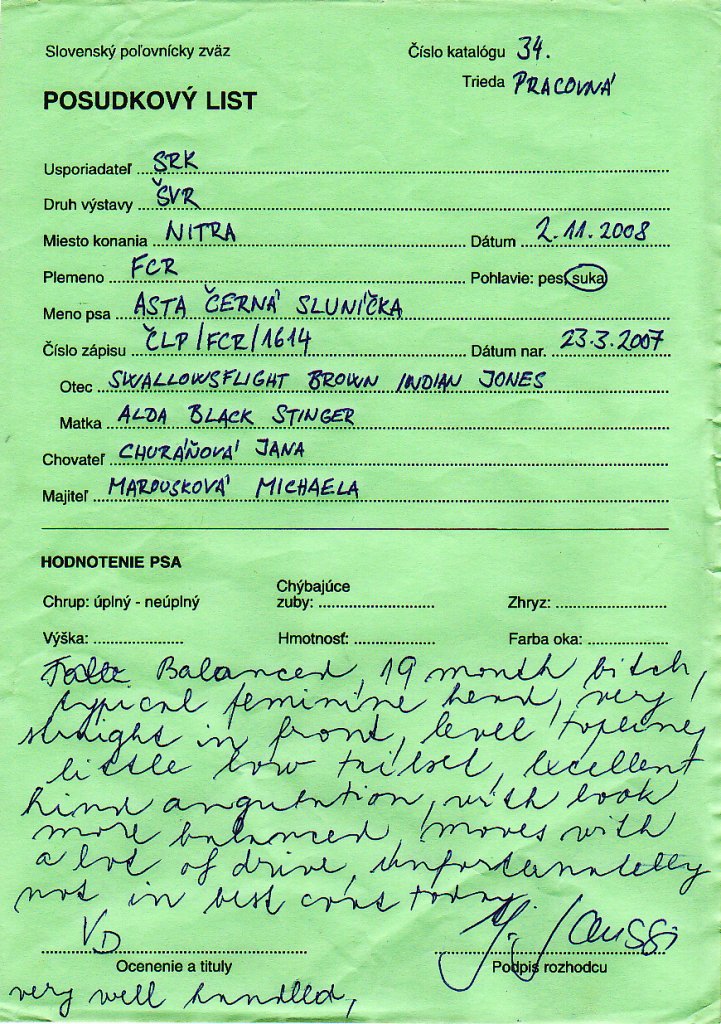 Slovenský poľovnícky zväz
Číslo katalógu 34.
Trieda PRACOVNÁ
POSUDKOVÝ LIST
Usporiadateľ SRK
Druh výstavy ŠVR
Miesto konania NITRA Dátum 2.11.2008
Plemeno FCR Pohlavie: pes, suka
Meno psa ASTA ČERNÁ SLUNÍČKA
Číslo zápisu ČLP/FCR/1614 Dátum nar. 23.3.2007
Otec SWALLOWSFLIGHT BROWN INDIAN JONES
Matka ALDA BLACK STINGER
Chovateľ CHURÁŇOVÁ JANA
Majiteľ MAROUSKOVÁ MICHAELA
HODNOTENIE PSA
Chrup: úplný - neúplný Chýbajúce zuby: Zhryz:
Výška: Hmotnosť: Farba oka:
Balanced, 19 month bitch,
typical feminine head, very
straight in front, level topline,
little low tailset, excellent
hind angulation, with look
more balanced, moves with
a lot of drive, unfortunatelly
not in best coat today
VD
Ocenenie a tituly Podpis rozhodcu
very well handled,